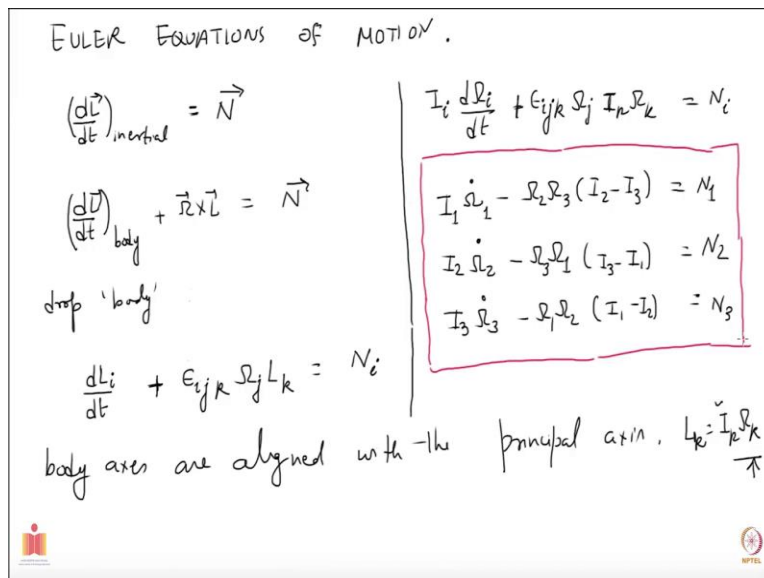 EULER EQUATIONS OF MOTION.
(dL⃗/dt)inertial = N⃗
(dL⃗/dt)body + Ω⃗×L⃗ = N⃗
drop 'body'
dLi/dt + ϵijk Ωj Lk = Ni
Ii dΩi/dt + ϵijk Ωj Ik Ωk = Ni
I1 Ω̇1 - Ω2Ω3 (I2-I3) = N1
I2 Ω̇2 - Ω3Ω1 (I3-I1) = N2
I3 Ω̇3 - Ω1Ω2 (I1-I2) = N3
body axes are aligned with the principal axis. Lk = Ik Ωk
NPTEL